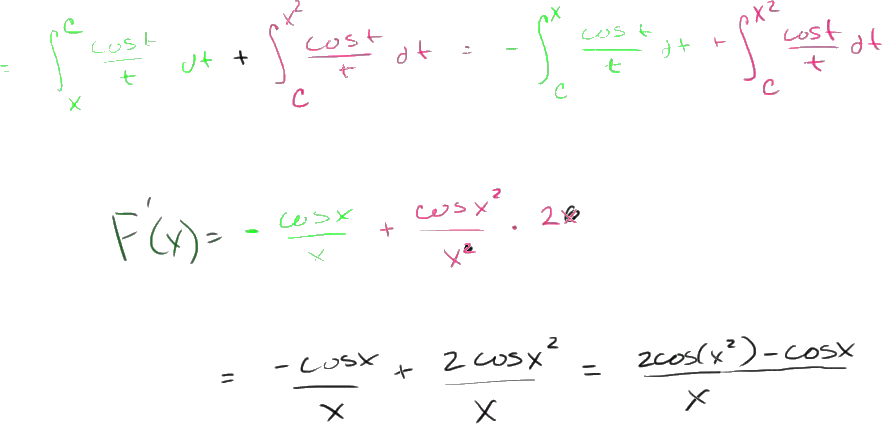 = ∫_x^c cos t / t dt + ∫_c^{x²} cos t / t dt = - ∫_c^x cos t / t dt + ∫_c^{x²} cos t / t dt
F'(x) = - cos x / x + cos x² / x² · 2x
= -cos x / x + 2 cos x² / x = 2cos(x²) - cos x / x